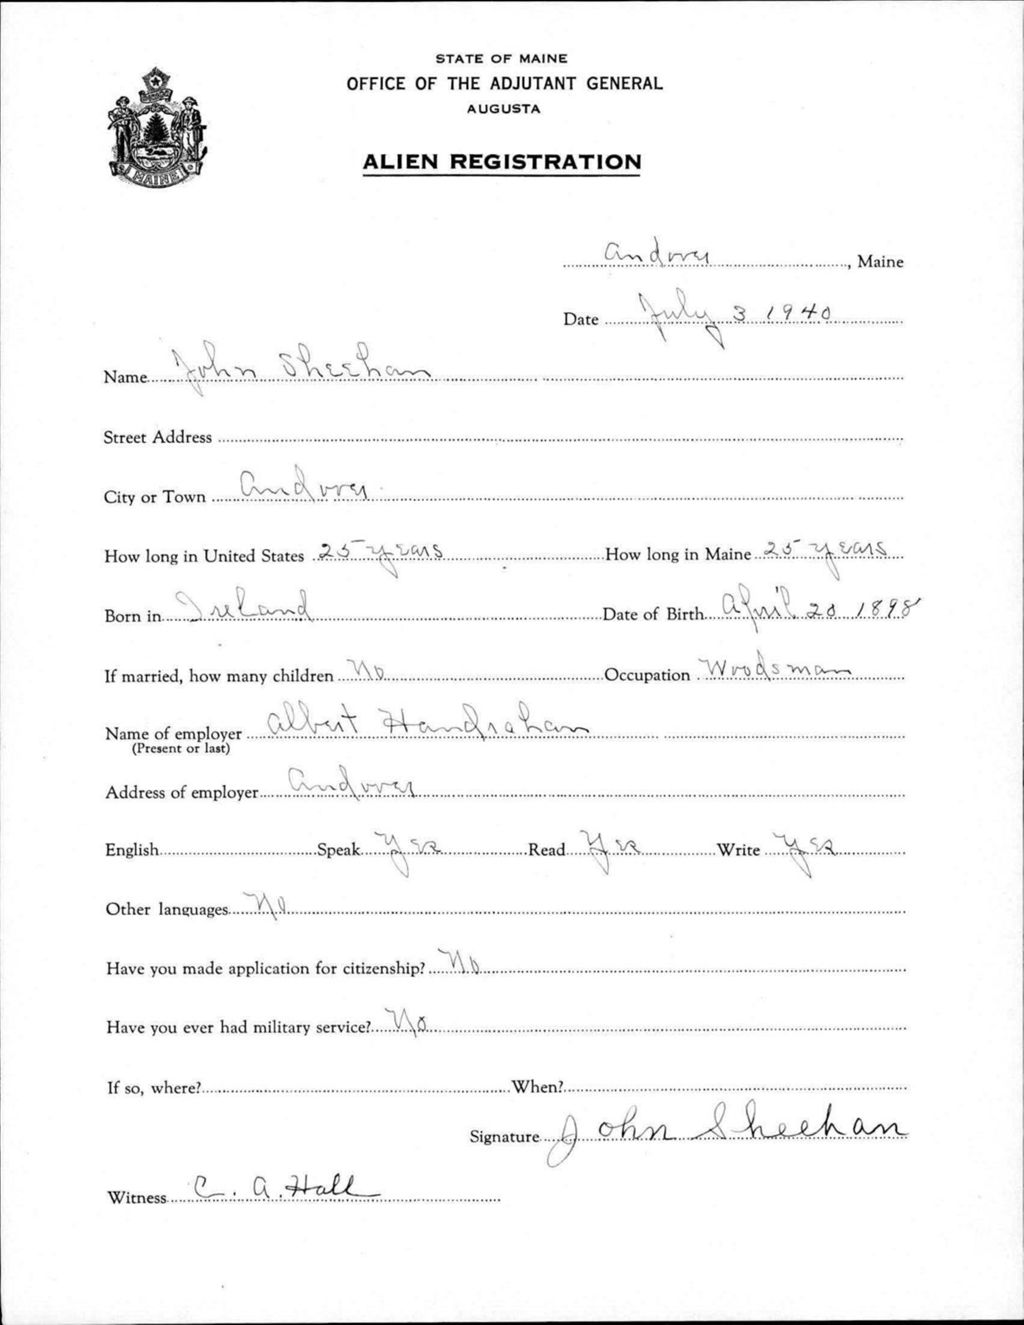 STATE OF MAINE
OFFICE OF THE ADJUTANT GENERAL
AUGUSTA
ALIEN REGISTRATION
MAINE
Andover, Maine
Date July 3 1940
Name John Sheehan
Street Address
City or Town Andover
How long in United States 25 years How long in Maine 25 years
Born in Ireland Date of Birth April 20 1898
If married, how many children No Occupation Woodsman
Name of employer Albert Handrahan
(Present or last)
Address of employer Andover
English Speak Yes Read Yes Write Yes
Other languages No
Have you made application for citizenship? No
Have you ever had military service? No
If so, where? When?
Signature John Sheehan
Witness C. A. Hall